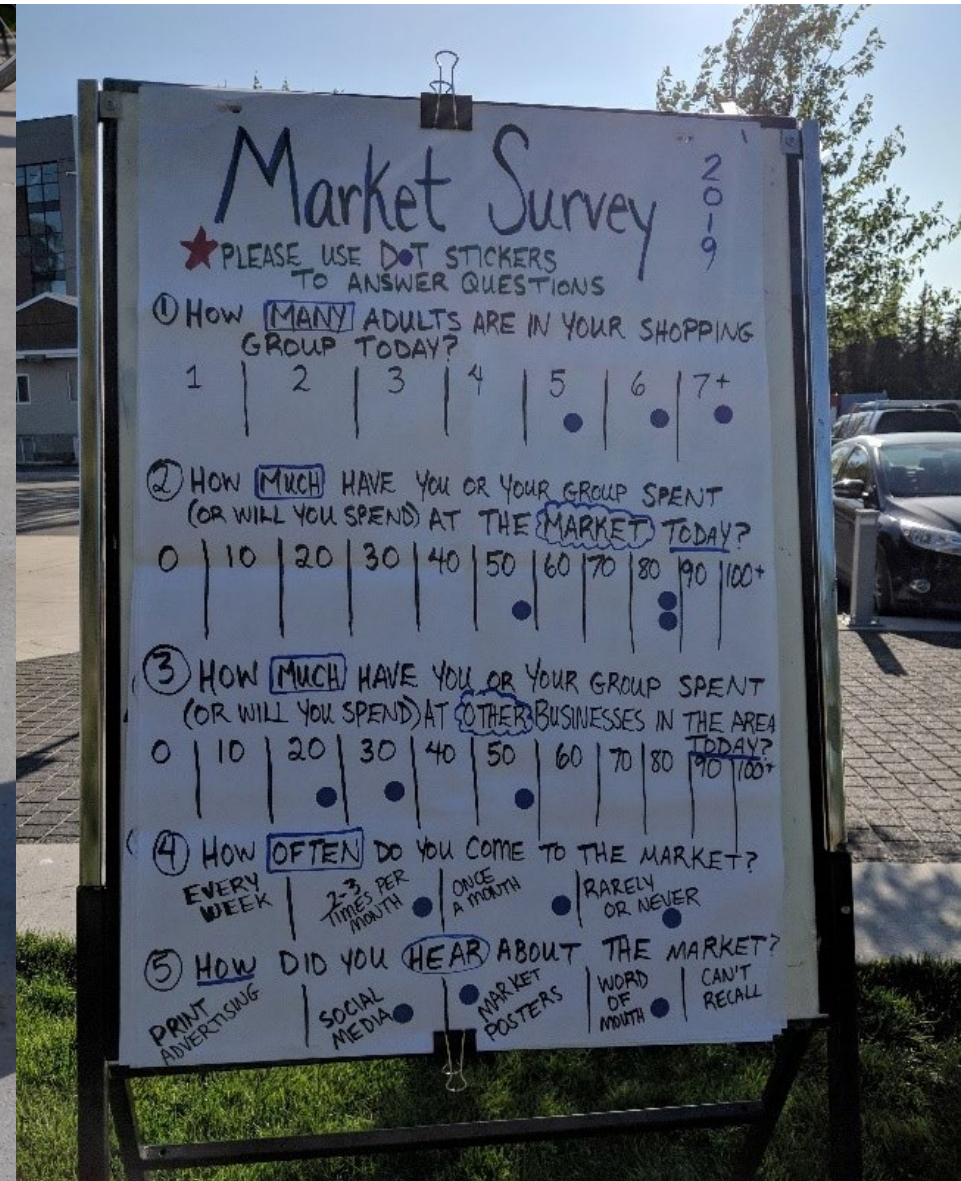 Market Survey 2019
★PLEASE USE DOT STICKERS
TO ANSWER QUESTIONS
① HOW MANY ADULTS ARE IN YOUR SHOPPING
GROUP TODAY?
1 2 3 4 5 6 7+
② HOW MUCH HAVE YOU OR YOUR GROUP SPENT
(OR WILL YOU SPEND) AT THE MARKET TODAY?
0 10 20 30 40 50 60 70 80 90 100+
③ HOW MUCH HAVE YOU OR YOUR GROUP SPENT
(OR WILL YOU SPEND) AT OTHER BUSINESSES IN THE AREA
TODAY?
0 10 20 30 40 50 60 70 80 90 100+
④ HOW OFTEN DO YOU COME TO THE MARKET?
EVERY
WEEK
2-3
TIMES PER
MONTH
ONCE
A MONTH
RARELY
OR NEVER
⑤ HOW DID YOU HEAR ABOUT THE MARKET?
PRINT
ADVERTISING
SOCIAL
MEDIA
MARKET
POSTERS
WORD
OF
MOUTH
CAN'T
RECALL